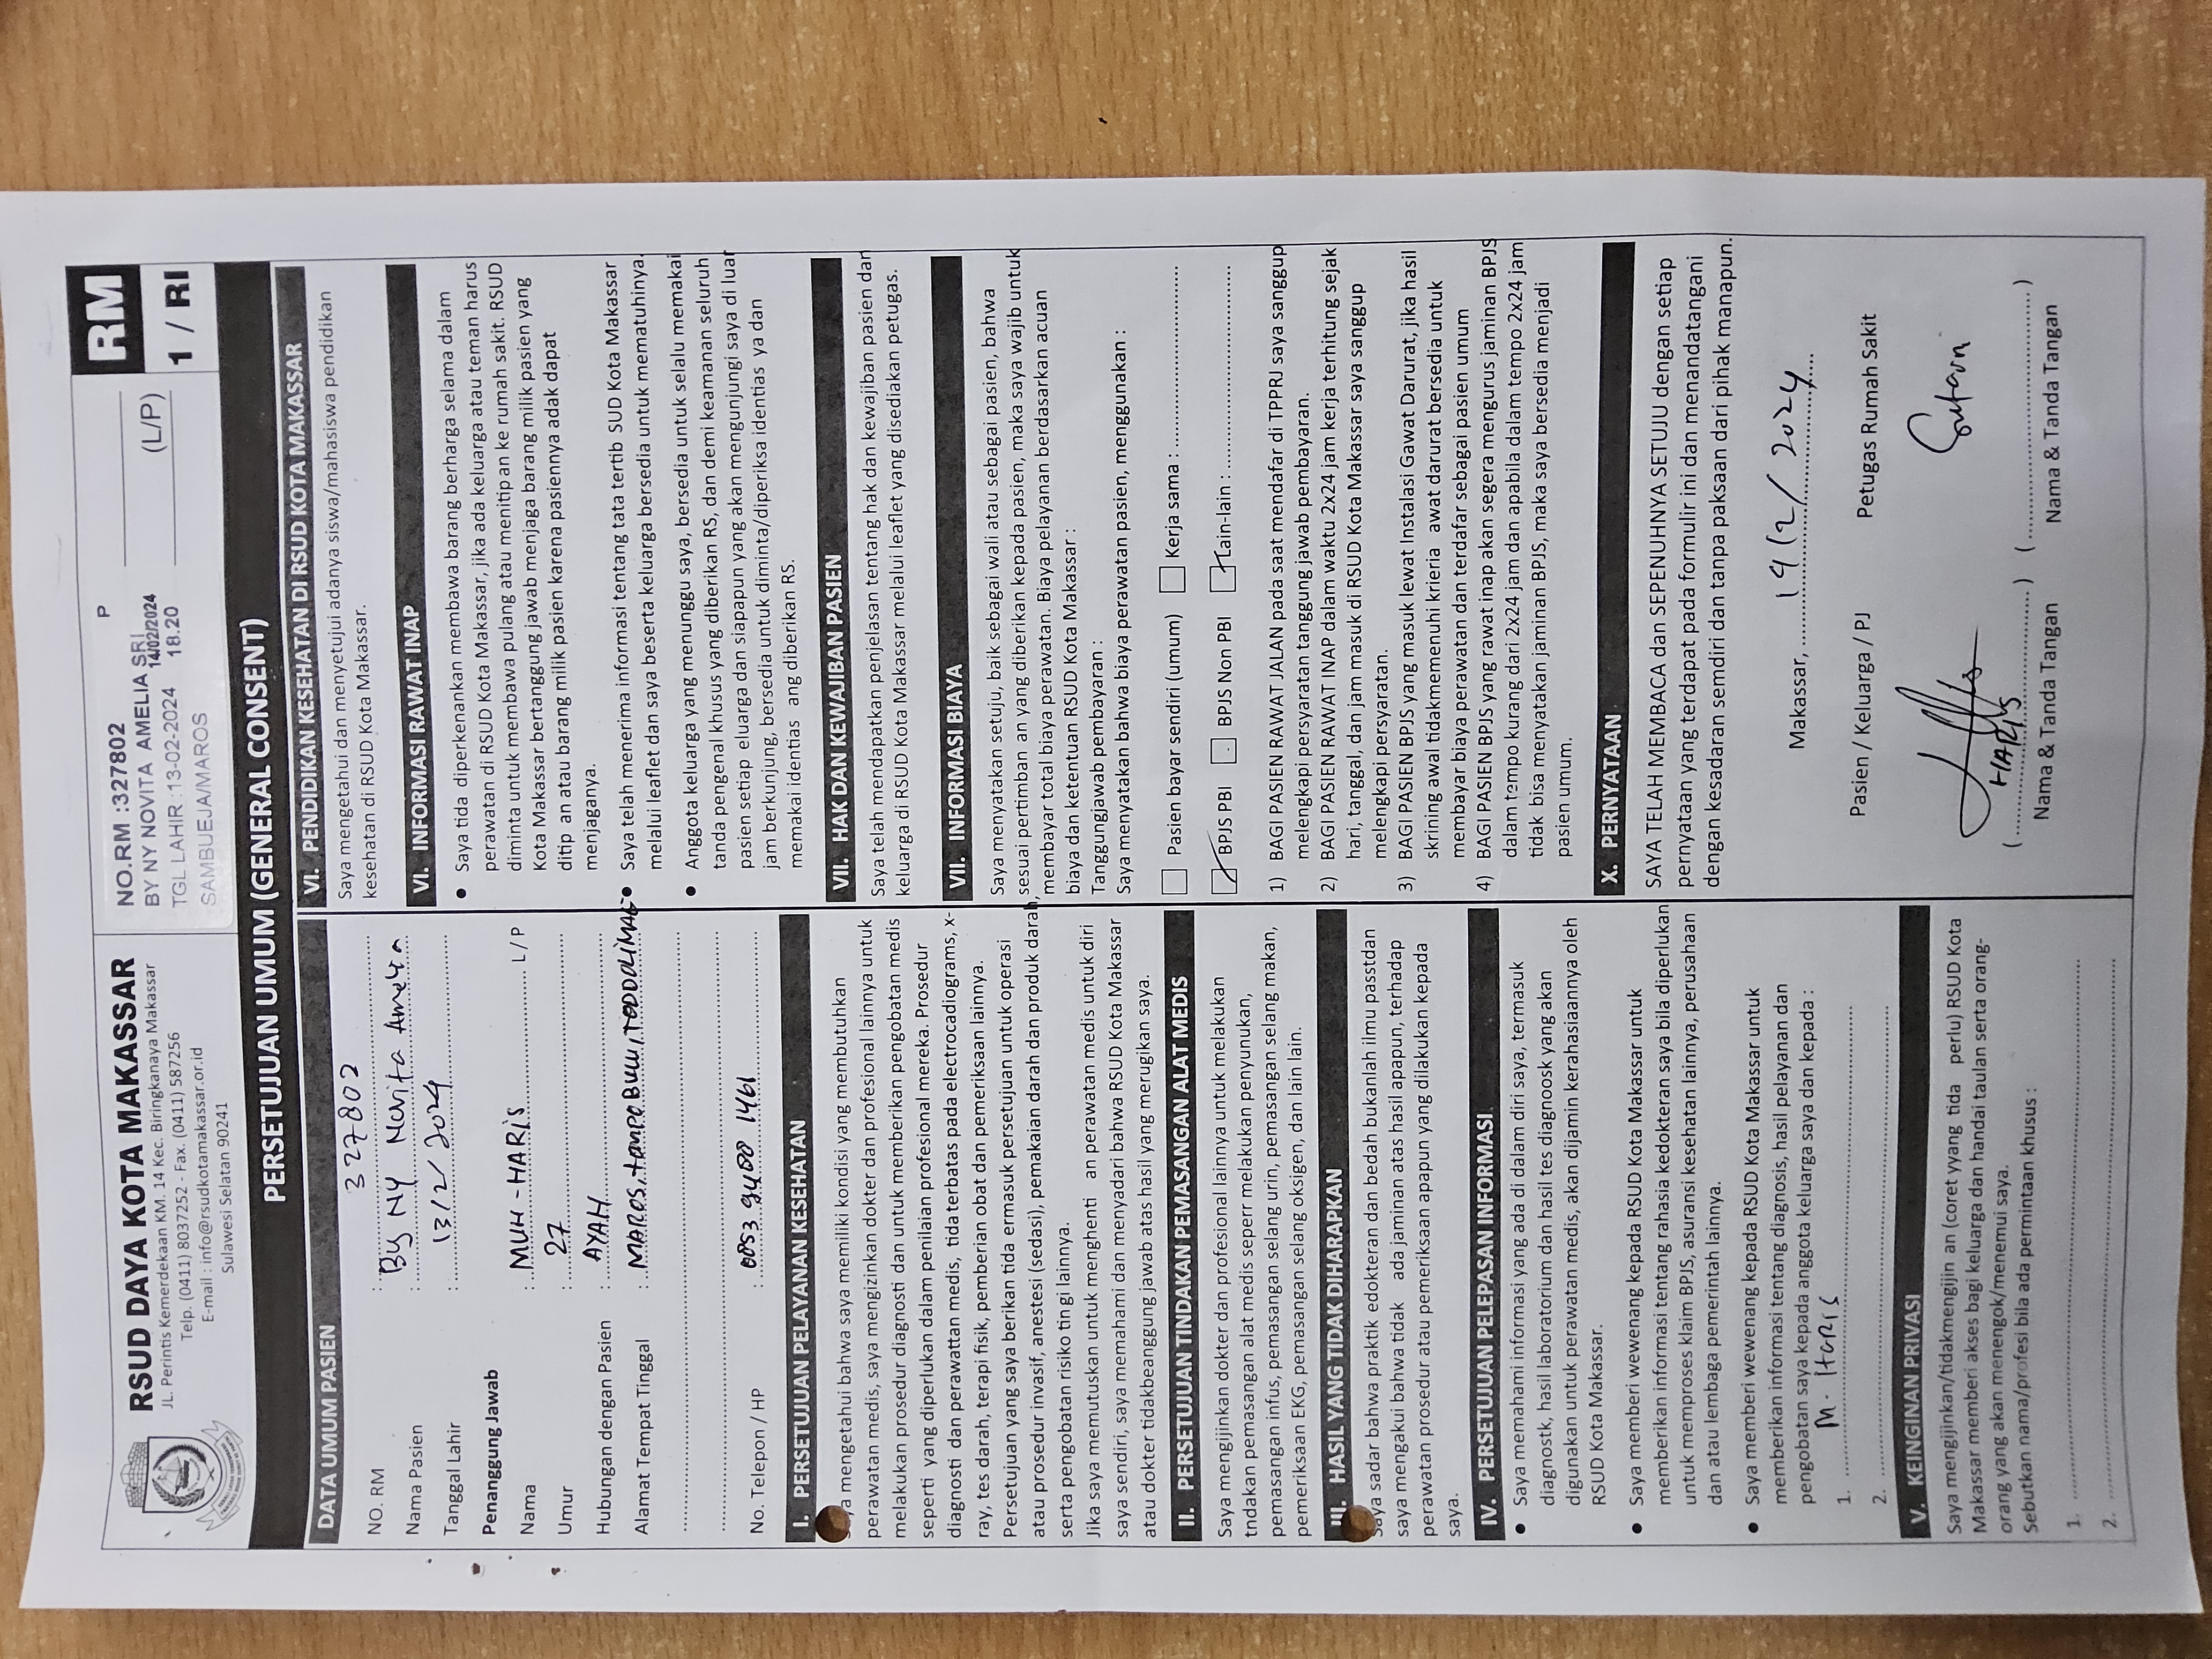 RSUD DAYA KOTA MAKASSAR
JL. Perintis Kemerdekaan KM. 14 Kec. Biringkanaya Makassar
Telp. (0411) 8037252 - Fax. (0411) 587256
E-mail : info@rsudkotamakassar.or.id
Sulawesi Selatan 90241
NO.RM :327802 P
BY NY NOVITA AMELIA SRI
14/02/2024
TGL LAHIR :13-02-2024 18.20
SAMBUEJA/MAROS
(L/P)
RM
1 / RI
PERSETUJUAN UMUM (GENERAL CONSENT)
DATA UMUM PASIEN
NO. RM : 327802
Nama Pasien : BY NY Novita Amelia
Tanggal Lahir : 13/2/2024
Penanggung Jawab
Nama : MUH-HARIS L / P
Umur : 27
Hubungan dengan Pasien : AYAH
Alamat Tempat Tinggal : MAROS,
No. Telepon / HP : 1461
I. PERSETUJUAN PELAYANAN KESEHATAN
a mengetahui bahwa saya memiliki kondisi yang membutuhkan
perawatan medis, saya mengizinkan dokter dan profesional lainnya untuk
melakukan prosedur diagnosti dan untuk memberikan pengobatan medis
seperti yang diperlukan dalam penilaian profesional mereka. Prosedur
diagnosti dan perawattan medis, tidaterbatas pada electrocadiograms, x-
ray, tes darah, terapi fisik, pemberian obat dan pemeriksaan lainnya.
Persetujuan yang saya berikan tida ermasuk persetujuan untuk operasi
atau prosedur invasif, anestesi (sedasi), pemakaian darah dan produk darah,
serta pengobatan risiko tin gi lainnya.
Jika saya memutuskan untuk menghenti an perawatan medis untuk diri
saya sendiri, saya memahami dan menyadari bahwa RSUD Kota Makassar
atau dokter tidakbeanggung jawab atas hasil yang merugikan saya.
II. PERSETUJUAN TINDAKAN PEMASANGAN ALAT MEDIS
Saya mengijinkan dokter dan profesional lainnya untuk melakukan
tndakan pemasangan alat medis seperr melakukan penyunukan,
pemasangan infus, pemasangan selang urin, pemasangan selang makan,
pemeriksaan EKG, pemasangan selang oksigen, dan lain lain.
III. HASIL YANG TIDAK DIHARAPKAN
Saya sadar bahwa praktik edokteran dan bedah bukanlah ilmu passtdan
saya mengakul bahwa tidak ada jaminan atas hasil apapun, terhadap
perawatan prosedur atau pemeriksaan apapun yang dilakukan kepada
saya.
IV. PERSETUJUAN PELEPASAN INFORMASI
• Saya memahami informasi yang ada di dalam diri saya, termasuk
diagnostk, hasil laboratorium dan hasil tes diagnoosk yang akan
digunakan untuk perawatan medis, akan dijamin kerahasiaannya oleh
RSUD Kota Makassar.
• Saya memberi wewenang kepada RSUD Kota Makassar untuk
memberikan informasi tentang rahasia kedokteran saya bila diperlukan
untuk memproses klaim BPJS, asuransi kesehatan lainnya, perusahaan
dan atau lembaga pemerintah lainnya.
• Saya memberi wewenang kepada RSUD Kota Makassar untuk
memberikan informasi tentang diagnosis, hasil pelayanan dan
pengobatan saya kepada anggota keluarga saya dan kepada :
1. M. Haris
2.
V. KEINGINAN PRIVASI
Saya mengijinkan/tidakmengijin an (coret yyang tida perlu) RSUD Kota
Makassar memberi akses bagi keluarga dan handai taulan serta orang-
orang yang akan menengok/menemui saya.
Sebutkan nama/profesi bila ada permintaan khusus :
1.
2.
VI. PENDIDIKAN KESEHATAN DI RSUD KOTA MAKASSAR
Saya mengetahui dan menyetujui adanya siswa/mahasiswa pendidikan
kesehatan di RSUD Kota Makassar.
VI. INFORMASI RAWAT INAP
• Saya tida diperkenankan membawa barang berharga selama dalam
perawatan di RSUD Kota Makassar, jika ada keluarga atau teman harus
diminta untuk membawa pulang atau menitipan ke rumah sakit. RSUD
Kota Makassar bertanggung jawab menjaga barang milik pasien yang
ditip an atau barang milik pasien karena pasiennya adak dapat
menjaganya.
• Saya telah menerima informasi tentang tata tertib SUD Kota Makassar
melalui leaflet dan saya beserta keluarga bersedia untuk mematuhinya.
• Anggota keluarga yang menunggu saya, bersedia untuk selalu memakai
tanda pengenal khusus yang diberikan RS, dan demi keamanan seluruh
pasien setiap eluarga dan siapapun yang akan mengunjungi saya di luar
jam berkunjung, bersedia untuk diminta/diperiksa identias ya dan
memakai identias ang diberikan RS.
VII. HAK DAN KEWAJIBAN PASIEN
Saya telah mendapatkan penjelasan tentang hak dan kewajiban pasien dan
keluarga di RSUD Kota Makassar melalui leaflet yang disediakan petugas.
VII. INFORMASI BIAYA
Saya menyatakan setuju, baik sebagai wali atau sebagai pasien, bahwa
sesuai pertimban an yang diberikan kepada pasien, maka saya wajib untuk
membayar total biaya perawatan. Biaya pelayanan berdasarkan acuan
biaya dan ketentuan RSUD Kota Makassar :
Tanggungjawab pembayaran :
Saya menyatakan bahwa biaya perawatan pasien, menggunakan :
Pasien bayar sendiri (umum) Kerja sama :
BPJS PBI BPJS Non PBI Lain-lain :
1) BAGI PASIEN RAWAT JALAN pada saat mendafar di TPPRJ saya sanggup
melengkapi persyratan tanggung jawab pembayaran.
2) BAGI PASIEN RAWAT INAP dalam waktu 2x24 jam kerja terhitung sejak
hari, tanggal, dan jam masuk di RSUD Kota Makassar saya sanggup
melengkapi persyaratan.
3) BAGI PASIEN BPJS yang masuk lewat Instalasi Gawat Darurat, jika hasil
skrining awal tidakmemenuhi krieria awat darurat bersedia untuk
membayar biaya perawatan dan terdafar sebagai pasien umum
4) BAGI PASIEN BPJS yang rawat inap akan segera mengurus jaminan BPJS
dalam tempo kurang dari 2x24 jam dan apabila dalam tempo 2x24 jam
tidak bisa menyatakan jaminan BPJS, maka saya bersedia menjadi
pasien umum.
X. PERNYATAAN
SAYA TELAH MEMBACA dan SEPENUHNYA SETUJU dengan setiap
pernyataan yang terdapat pada formulir ini dan menandatangani
dengan kesadaran sendiri dan tanpa paksaan dari pihak manapun.
Makassar, 14/2/2024
Pasien / Keluarga / PJ Petugas Rumah Sakit
HARIS
Nama & Tanda Tangan Nama & Tanda Tangan